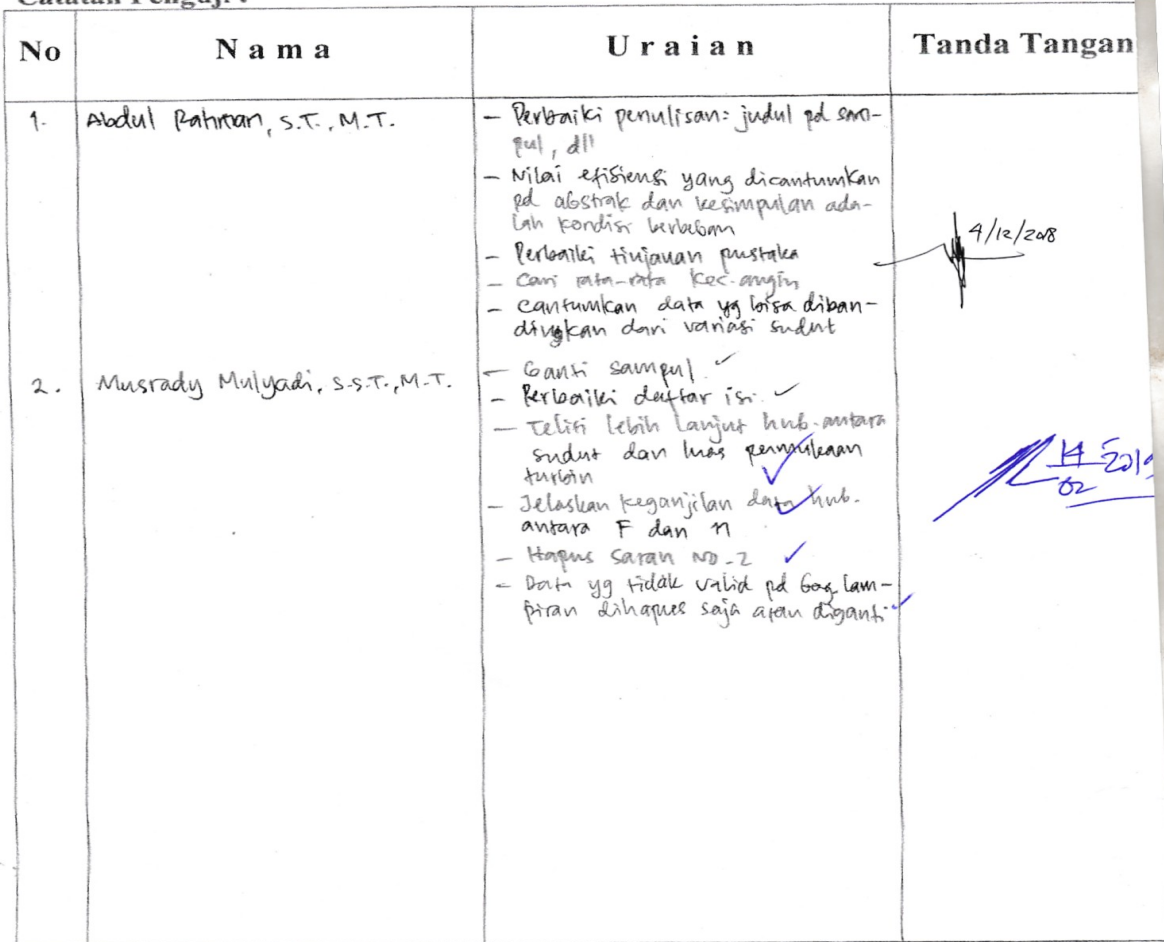 Catatan Penguji :
No Nama Uraian Tanda Tangan
1. Abdul Rahman, S.T., M.T. - Perbaiki penulisan: judul pd sam-
pul, dll
- Nilai efisiensi yang dicantumkan
pd abstrak dan kesimpulan ada-
lah kondisi berbeban
- Perbaiki tinjauan pustaka
4/12/2018
- Cari rata-rata kec. angin
- Cantumkan data yg bisa diban-
dingkan dari variasi sudut
- Ganti sampul
2. Musrady Mulyadi, S.S.T., M.T.
- Perbaiki daftar isi
- Teliti lebih lanjut hub. antara
sudut dan luas permukaan
turbin
14 2019
02
- Jelaskan keganjilan data hub.
antara F dan η
- Hapus saran NO-2
- Data yg tidak valid pd lam-
piran dihapus saja atau diganti